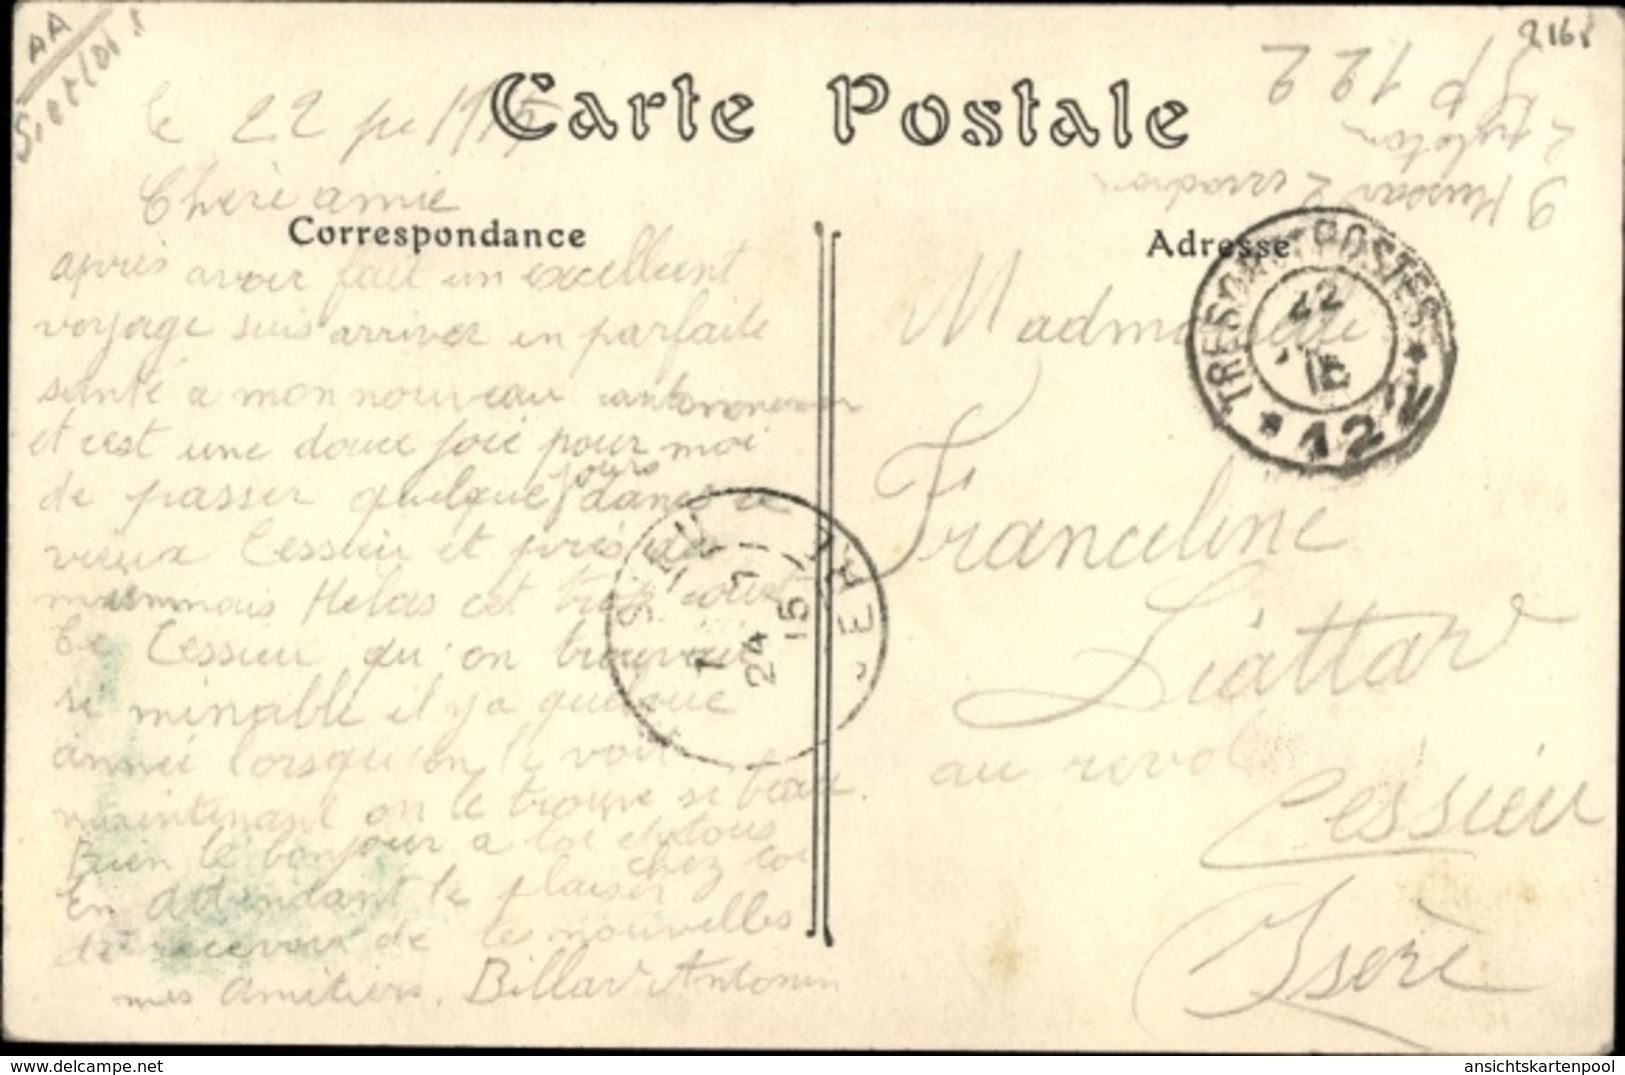 AA
Si et toi !
2168
Carte Postale
le 22 1915
Chère amie
Correspondance
après avoir fait un excellent
voyage suis arriver en parfaite
santé a mon nouveau
et cest une douce joie pour moi
de passer quelque jours dans ce
vieux Cessieu et près de
mais Helas cet trop court
Ce Cessieu qu'on trouvait
si minable il y a quelque
année lorsqu'on le voit
maintenant on le trouve si beau
Bien le bonjour a toi et tous
chez toi
En attendant le plaisir
de recevoir de tes nouvelles
mes amitiers. Billard Antonin
9 Hussard 2 escadron
2 peloton
SP 122
Adresse
Mademoiselle
Franceline
Liattard
au revol
Cessieu
Isère
TRESOR ET POSTES
22
15
* 122 *
CESSIEU
7
24
15
ISERE
ansichtskartenpool